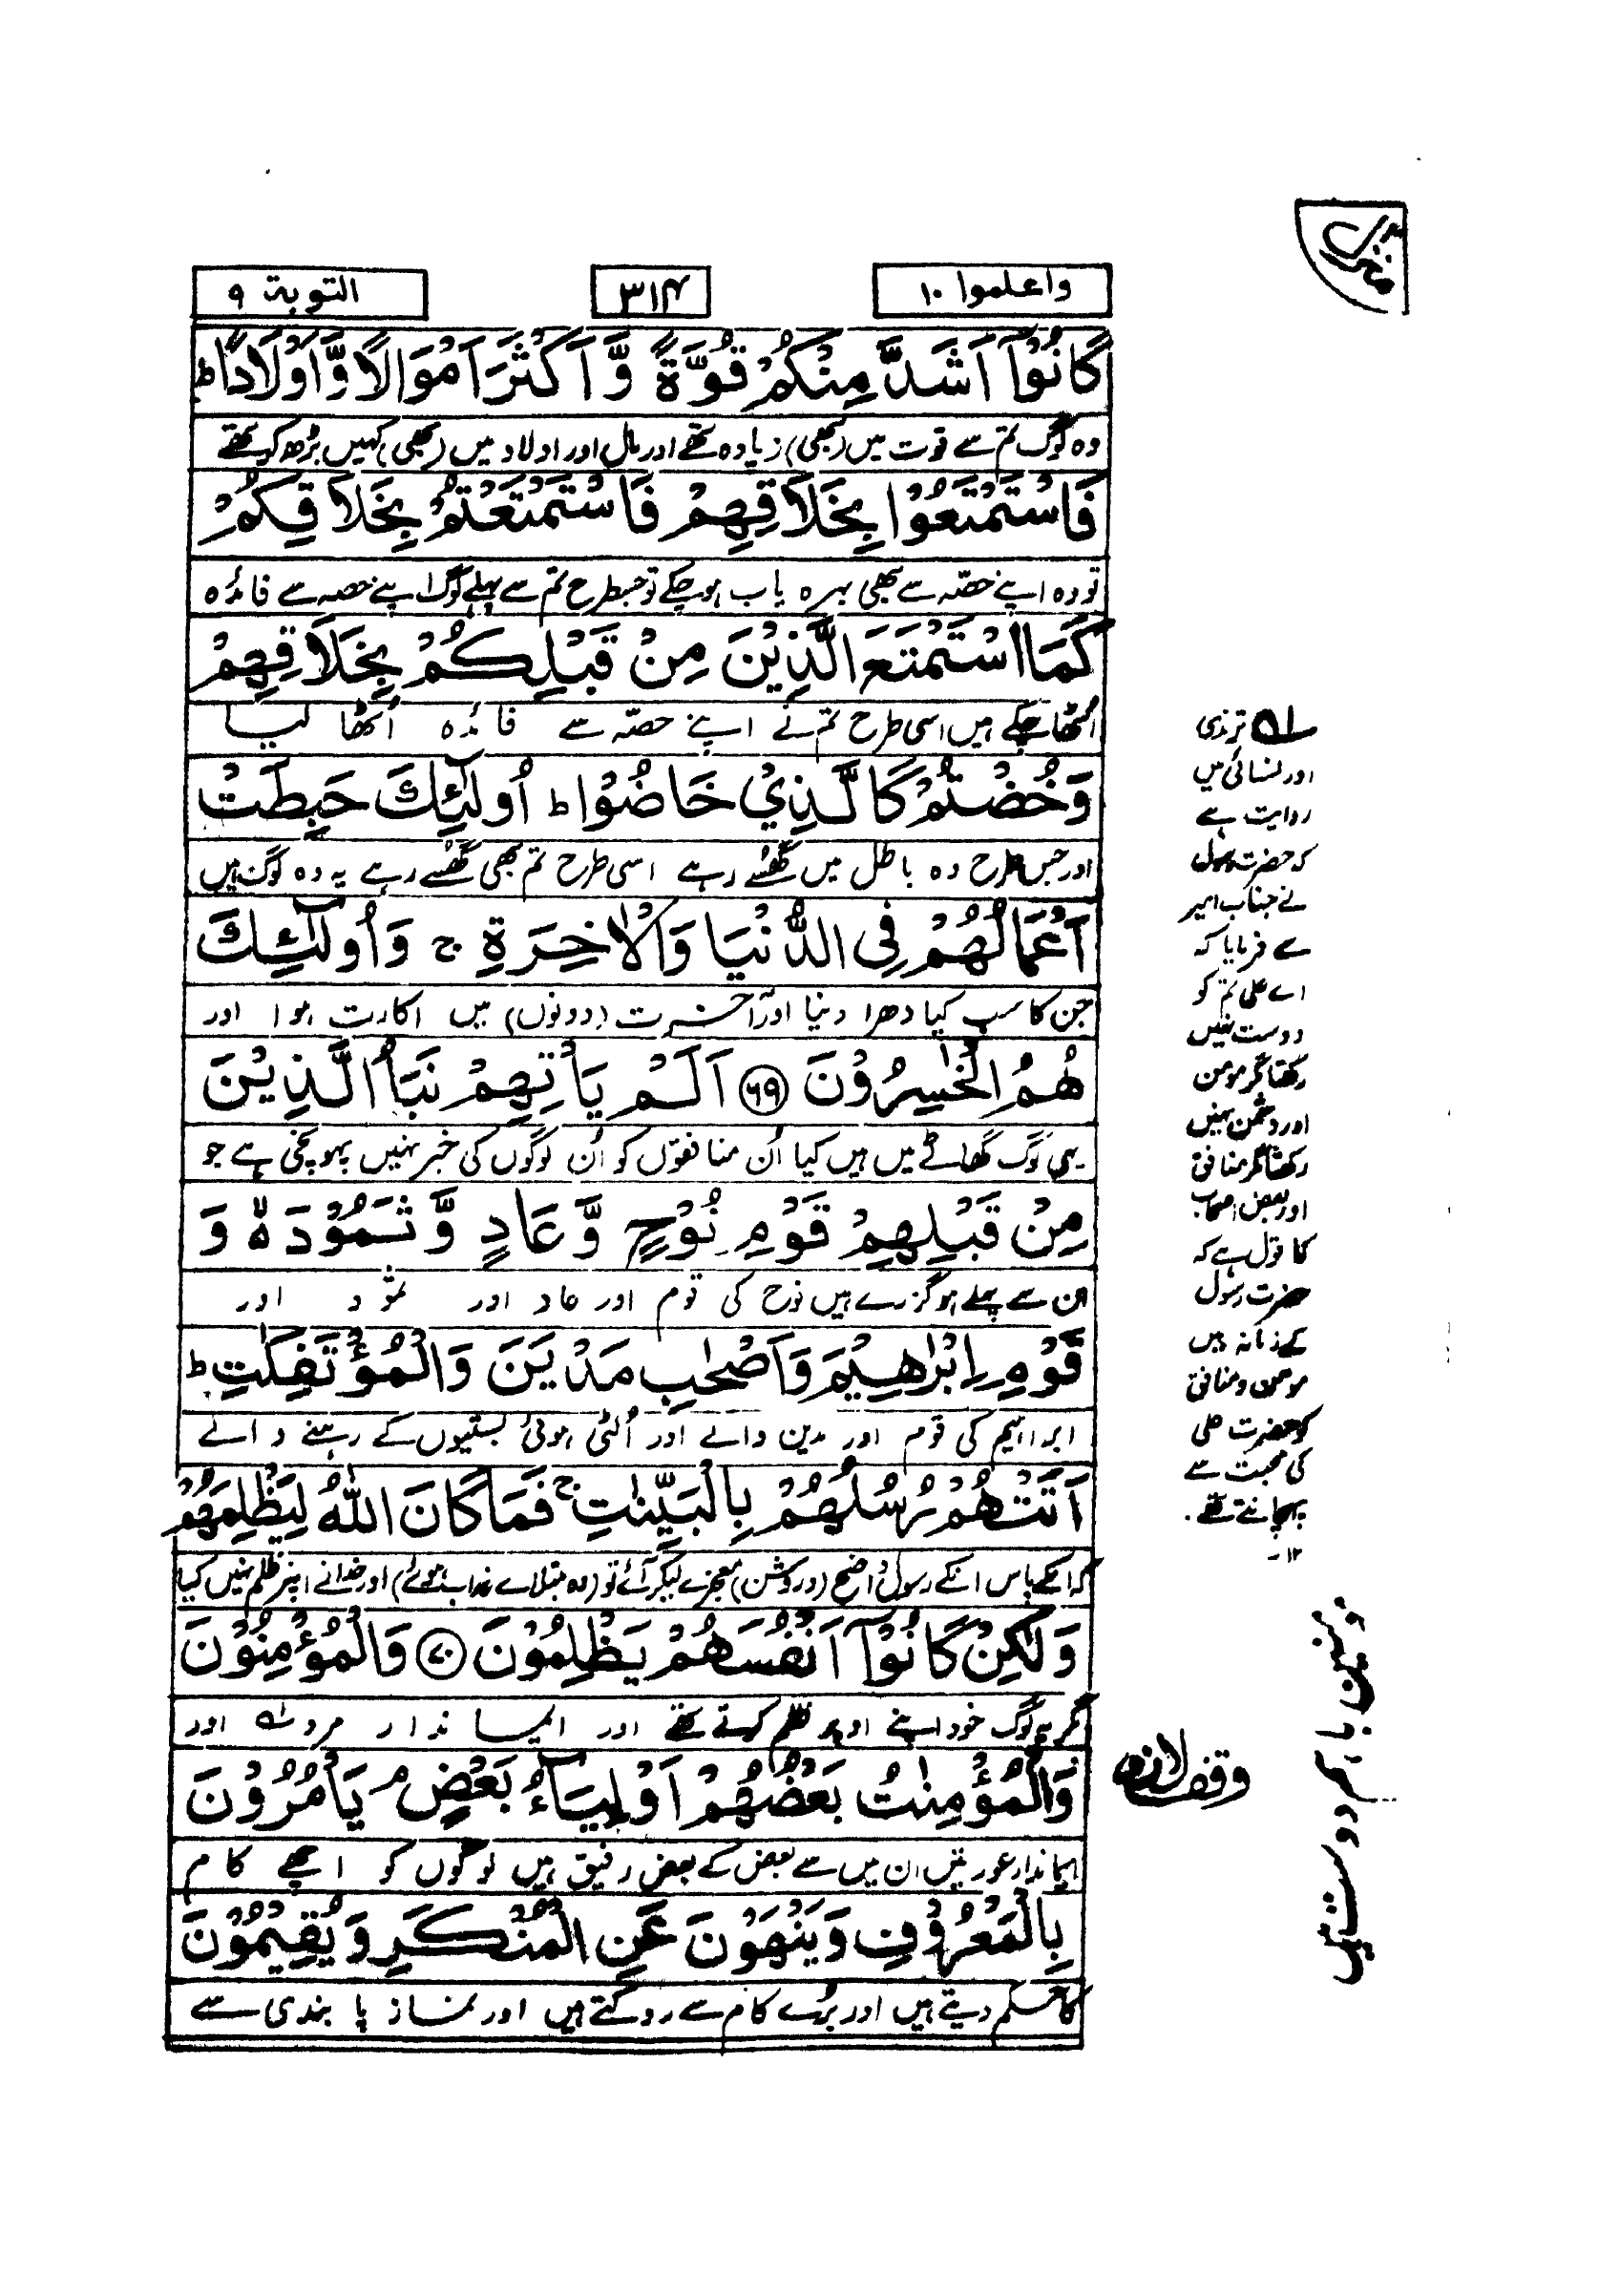 واعلموا ١٠
٣١٤
التوبة ٩
كَانُوْۤا اَشَدَّ مِنْكُمْ قُوَّةً وَّ اَكْثَرَ اَمْوَالًا وَّ اَوْلَادًا ؕ
وہ لوگ تم سے قوت میں (بھی) زیادہ تھے اور مال اور اولاد میں (بھی) کہیں بڑھ کر تھے
فَاسْتَمْتَعُوْا بِخَلَاقِهِمْ فَاسْتَمْتَعْتُمْ بِخَلَاقِكُمْ
تو وہ اپنے حصّہ سے بھی بہرہ یاب ہو چکے تو جسطرح تم سے پہلے لوگ اپنے حصہ سے فائدہ
كَمَا اسْتَمْتَعَ الَّذِيْنَ مِنْ قَبْلِكُمْ بِخَلَاقِهِمْ
اُٹھا چکے ہیں اسی طرح تم نے اپنے حصّہ سے فائدہ اُٹھا لیا
وَخُضْتُمْ كَالَّذِيْ خَاضُوْا ؕ اُولٰٓئِكَ حَبِطَتْ
اور جس طرح وہ باطل میں گھُسے رہے اسی طرح تم بھی گھُسے رہے یہ وہ لوگ ہیں
اَعْمَالُهُمْ فِى الدُّنْيَا وَالْاٰخِرَةِ ۚ وَاُولٰٓئِكَ
جن کا سب کیا دھرا دنیا اور آخرت (دونوں) میں اکارت ہوا اور
هُمُ الْخٰسِرُوْنَ ﴿٦٩﴾ اَلَمْ يَاْتِهِمْ نَبَاُ الَّذِيْنَ
یہی لوگ گھاٹے میں ہیں کیا اُن منافقوں کو اُن لوگوں کی خبر نہیں پہونچی ہے جو
مِنْ قَبْلِهِمْ قَوْمِ نُوْحٍ وَّ عَادٍ وَّ ثَمُوْدَ ۙ۬ وَ
ان سے پہلے ہو گزرے ہیں نوح کی قوم اور عاد اور ثمود اور
قَوْمِ اِبْرٰهِيْمَ وَاَصْحٰبِ مَدْيَنَ وَالْمُؤْتَفِكٰتِ ؕ
ابراہیم کی قوم اور مدین والے اور اُلٹی ہوئی بستیوں کے رہنے والے
اَتَتْهُمْ رُسُلُهُمْ بِالْبَيِّنٰتِ ۚ فَمَا كَانَ اللّٰهُ لِيَظْلِمَهُمْ
کہ انکے پاس انکے رسول واضح (و روشن) معجزے لیکر آئے تو (وہ مبتلاے عذاب ہوئے) اور خدا نے اپنر ظلم نہیں کیا
وَلٰكِنْ كَانُوْۤا اَنْفُسَهُمْ يَظْلِمُوْنَ ﴿٧٠﴾ وَالْمُؤْمِنُوْنَ
مگر یہ لوگ خود اپنے اوپر ظلم کرتے تھے اور ایماندار مرد ؎۱ اور
وَالْمُؤْمِنٰتُ بَعْضُهُمْ اَوْلِيَآءُ بَعْضٍ ۘ يَاْمُرُوْنَ
ایماندار عورتیں ان میں سے بعض کے بعض رفیق ہیں لوگوں کو اچھے کام
بِالْمَعْرُوْفِ وَيَنْهَوْنَ عَنِ الْمُنْكَرِ وَيُقِيْمُوْنَ
کا حکم دیتے ہیں اور بُرے کام سے روکتے ہیں اور نماز پابندی سے
؎۱ ترمذی
اور نسائی میں
روایت ہے
کہ حضرت رسول
نے جناب امیر
سے فرمایا کہ
اے علی تم کو
دوست نہیں
رکھتا مگر مومن
اور دشمن نہیں
رکھتا مگر منافق
اور بعض اصحاب
کا قول ہے کہ
حضرت رسول
کے زمانہ میں
مومن و منافق
کو حضرت علی
کی محبت سے
پہچانتے تھے۔
۱۲۔
وقف لازم
مومنین باہم دوست ہیں